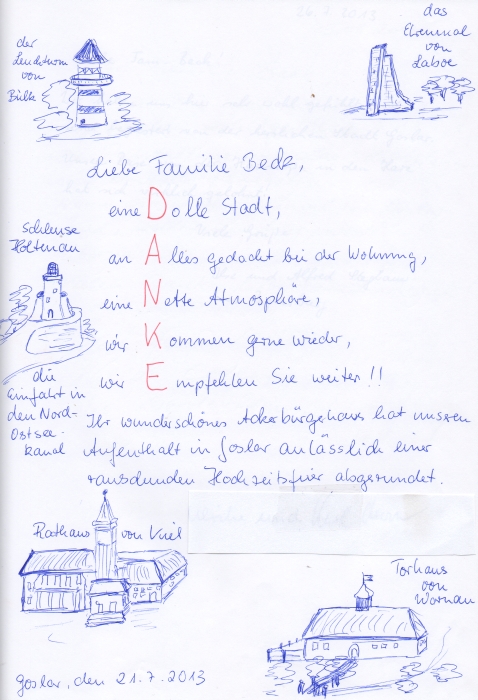 der
Leuchtturm
von
Bülk
das
Ehrenmal
von
Laboe
Liebe Familie Beck,
eine Dolle Stadt,
an Alles gedacht bei der Wohnung,
eine Nette Atmosphäre,
wir Kommen gerne wieder,
wir Empfehlen Sie weiter!!
Schleuse
Holtenau
die
Einfahrt in
den Nord-
Ostsee-
kanal
Ihr wunderschönes Ackerbürgehaus hat unseren
Aufenthalt in Goslar anlässlich einer
rauschenden Hochzeitsfeier abgerundet.
Rathaus von Kiel
Torhaus
von
Goslar, den 21.7.2013